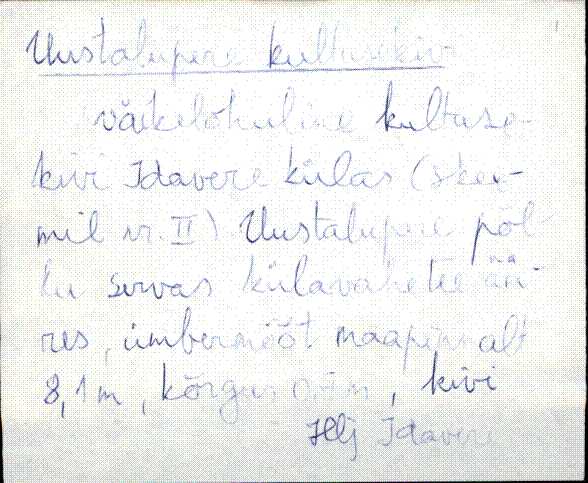 Uustalupere kultusekivi
väikelohuline kultuse-
kivi Idavere külas (skee-
mil nr. II) Uustalupere põl-
lu servas külavahetee ää-
res, ümbermõõt maapinnalt
8,1 m, kõrgus m, kivi
Hlj Idavere